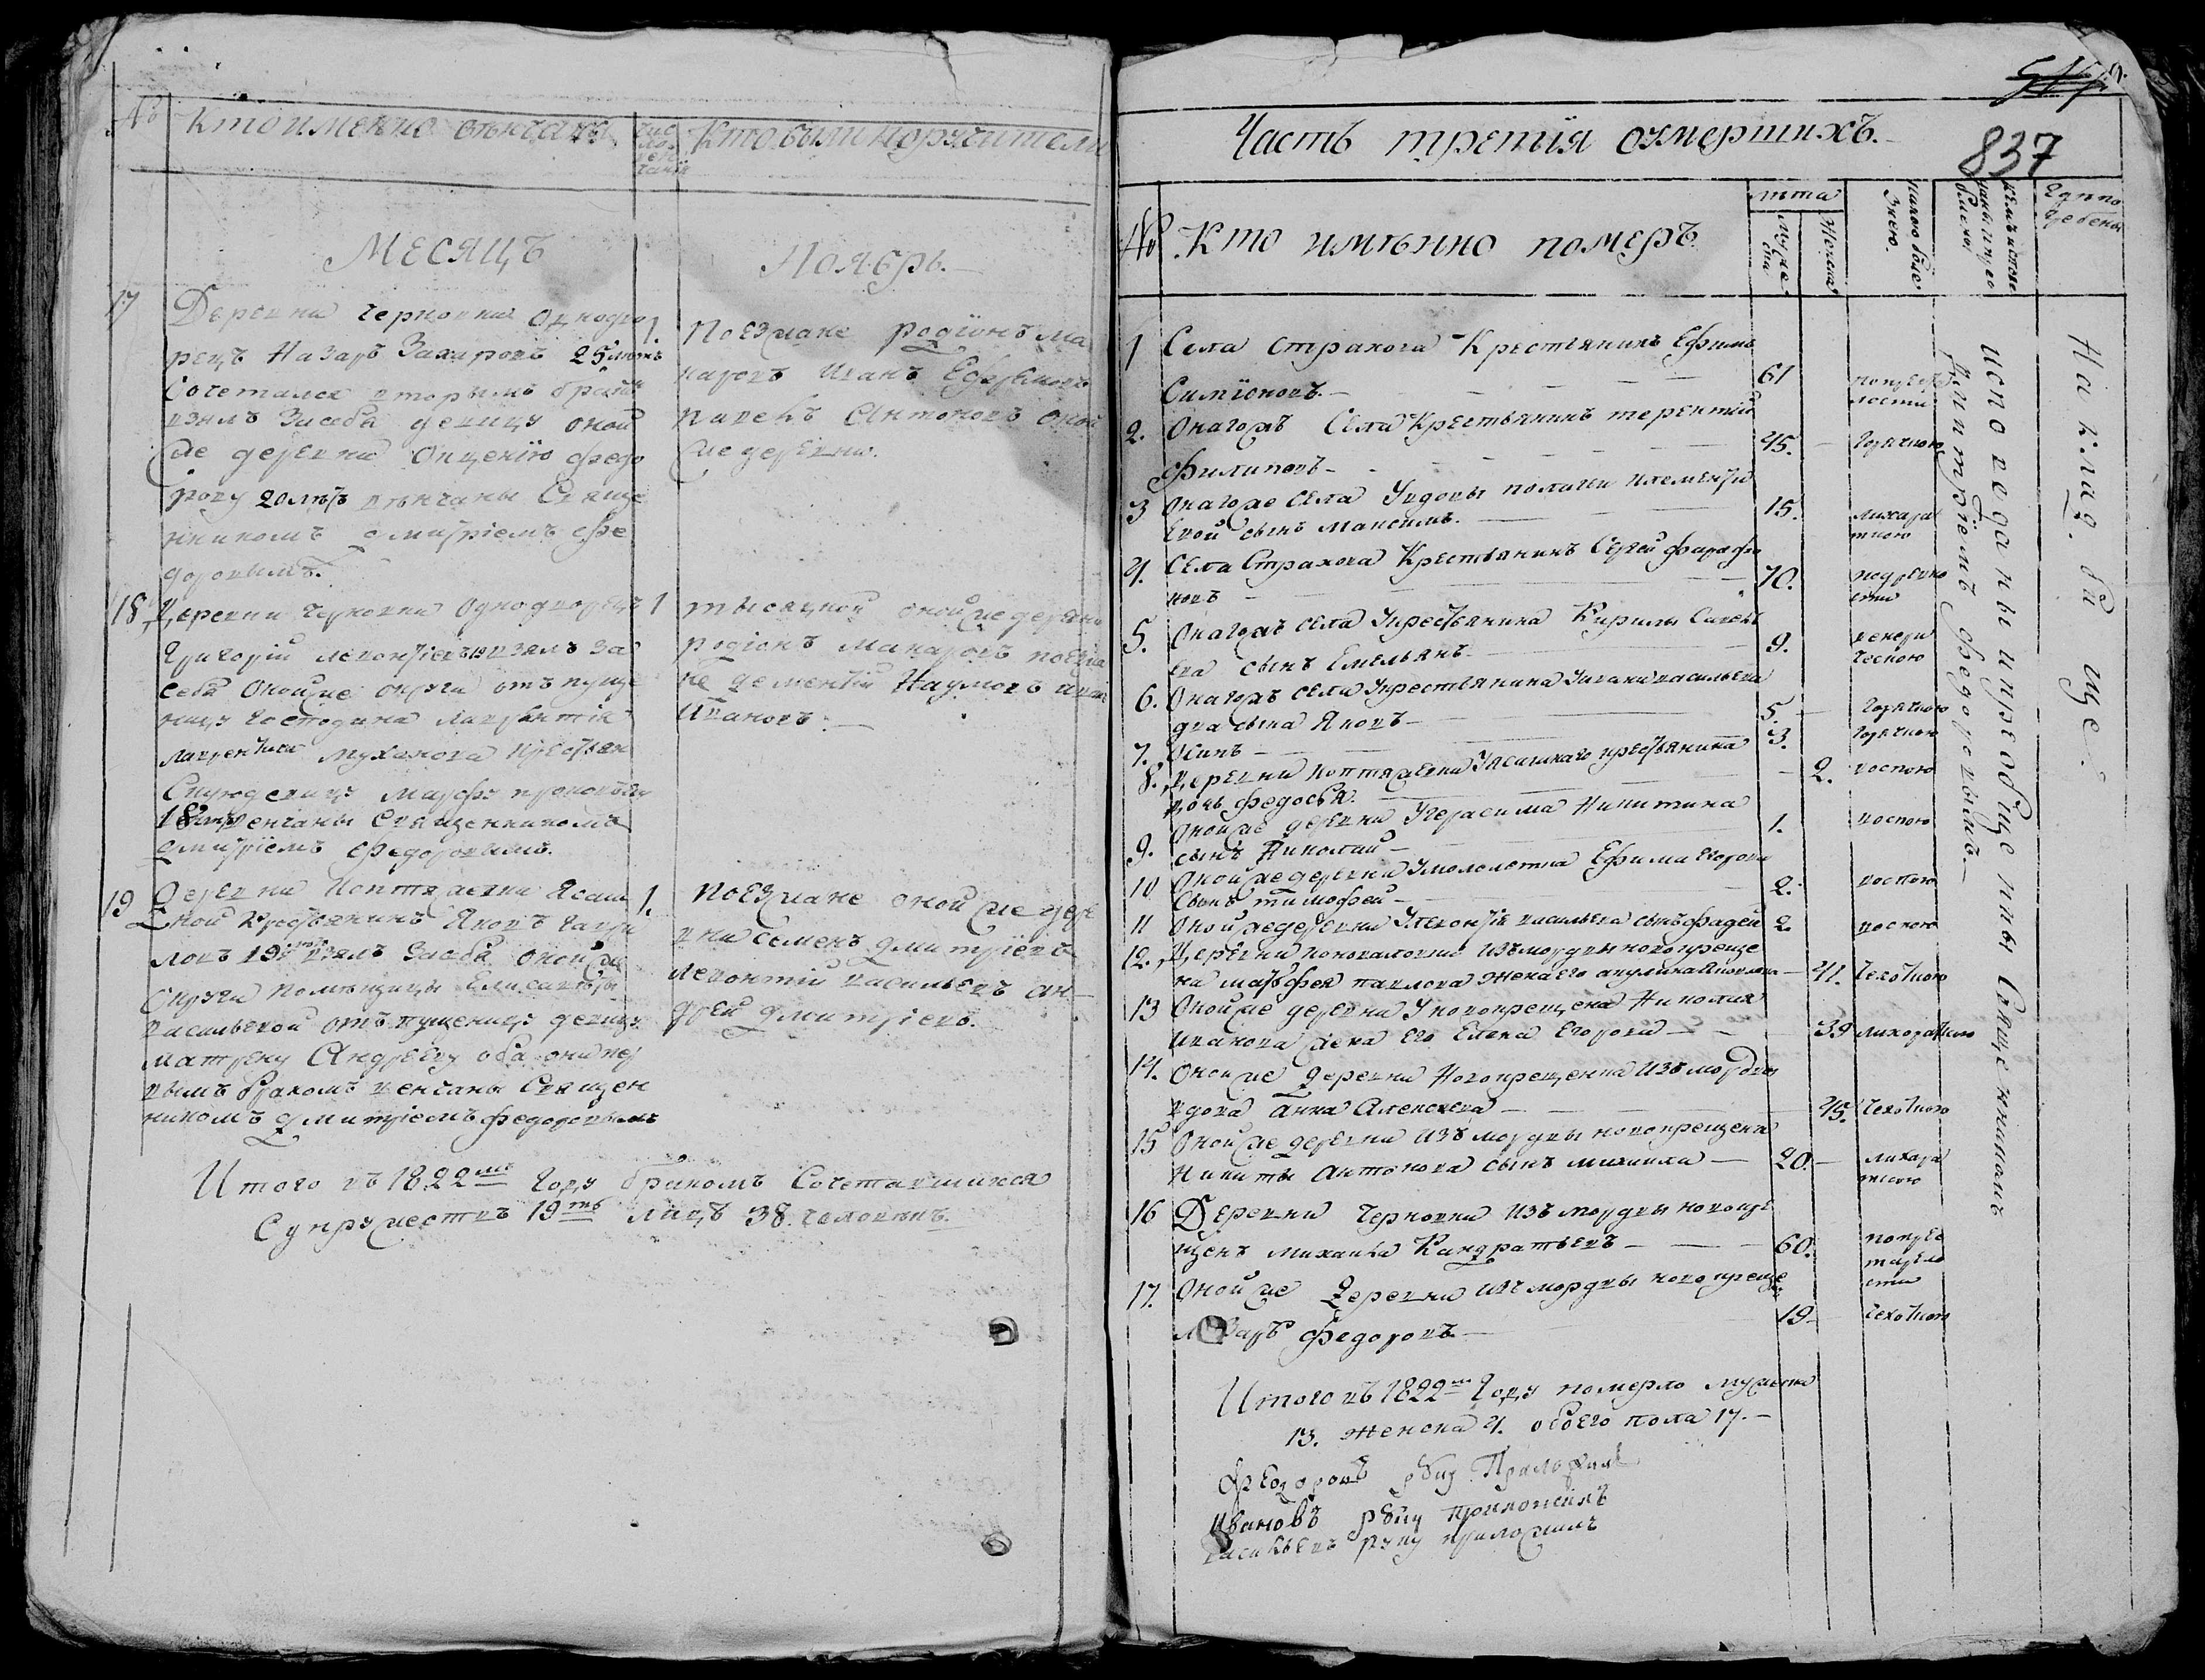 № Кто именно венчаны
число венчаній
Кто были поручители
МЕСЯЦЪ
Ноябрь.
17
Деревни черновки однодво
рецъ Назаръ Захаровъ 25 лѣтъ
Сочетался вторымъ бракъ
взялъ засебя девицу оной
же деревни федо
рову 20 лѣтъ венчаны Свяще
нникомъ дмитріемъ фе
доровымъ.
1.
Поезжане родіонъ ма
каровъ Иванъ Ефремовъ
Антоновъ оной
же деревни.
18.
Деревни черновки Однодворецъ
Григорій леонтіевъ взялъ за
себя оной же округи отъпуще
ницу Господина лаврентія
лаврентьева муханова крестьян
скую девицу марфу
18 лѣтъ венчаны Священникомъ
дмитріемъ федоровымъ.
1
тысяцкой оной же деревни
родіонъ макаровъ поезжа
не дементій Наумовъ иванъ
Ивановъ.
19
Деревни Коптяжевки Ясаш
ной Крестьянинъ Яковъ гаври
ловъ 19 взялъ засебя оной же
Округи помѣщицы Елисаветы
васильевой отъпущеницу девицу
матрену Андрееву оба они пер
вымъ бракомъ венчаны Священ
никомъ дмитріемъ федоровымъ
1.
Поезжане оной же дере
вни семенъ дмитріевъ
левонтій васильевъ ан
дрей дмитріевъ.
Итого въ 1822мъ Году бракомъ Сочетавшихся
Супружествъ 19ть лицъ 38. человѣкъ.
837
Часть третія оумершихъ.
№
Кто имѣнно померъ
лѣта
мужеска
женска
какою болезнею.
кемъ исповеданы и пріобщены
Гдѣ погребены
1 Села страхова Крестьянинъ Ефимъ
Симіоновъ. 61 по престарелости
2. Онагожъ Села Крестьянинъ терентій
филиповъ 45. Горячкою
3 Онагоже села Увдовы
сынъ максимъ. 15. лихарадкою
4. Села Страхова Крестьянинъ Сергей
новъ 70. по древности
5. Онагожъ села Укрестьянина Кирилы Савель
ева сынъ Емельянъ. 9. венерическою
6. Онагожъ села Укрестьянина васильева
два сына Яковъ 5. Горячкою
7. Осипъ 3. Горячкою
8. Деревни Коптяжевки Уясашнаго крестьянина
дочь федосья. 2. воспою
9. Оной же деревни Угерасима Никитина
сынъ Николай 1. воспою
10 Оной же деревни Ефима Егорова
Сынъ тимофей 2. воспою
11 Оной же деревни Улевонтія васильева сынъ фадей 2. воспою
12. Деревни изъ мордвы новокреще
на матфея павлова жена его акулина Яковлева 41. Чехоткою
13 Оной же деревни Уновокрещена Николая
Иванова жена его Елена Егорова 39 лихорадкою
14. Оной же деревни Новокрещенка изъ мордвы
вдова анна Алексеева 45. Чехоткою
15 Оной же деревни изъ мордвы новокрещена
Никиты антонова сынъ михаила 20. лихарадкою
16 Деревни черновки изъ мордвы новокре
щенъ михаила Кандратьевъ 60. по престарелости
17. Оной же деревни изъ мордвы новокреще
федоровъ 19 Чехоткою
исповеданы и пріобщены Священникомъ
дмитріемъ федоровымъ
На клад. бище.
Итого въ 1822мъ Году померло мужеска
13. женска 4. обоего пола 17.
Федоровъ руку Приложилъ
Ивановъ руку приложилъ
васильевъ руку приложилъ